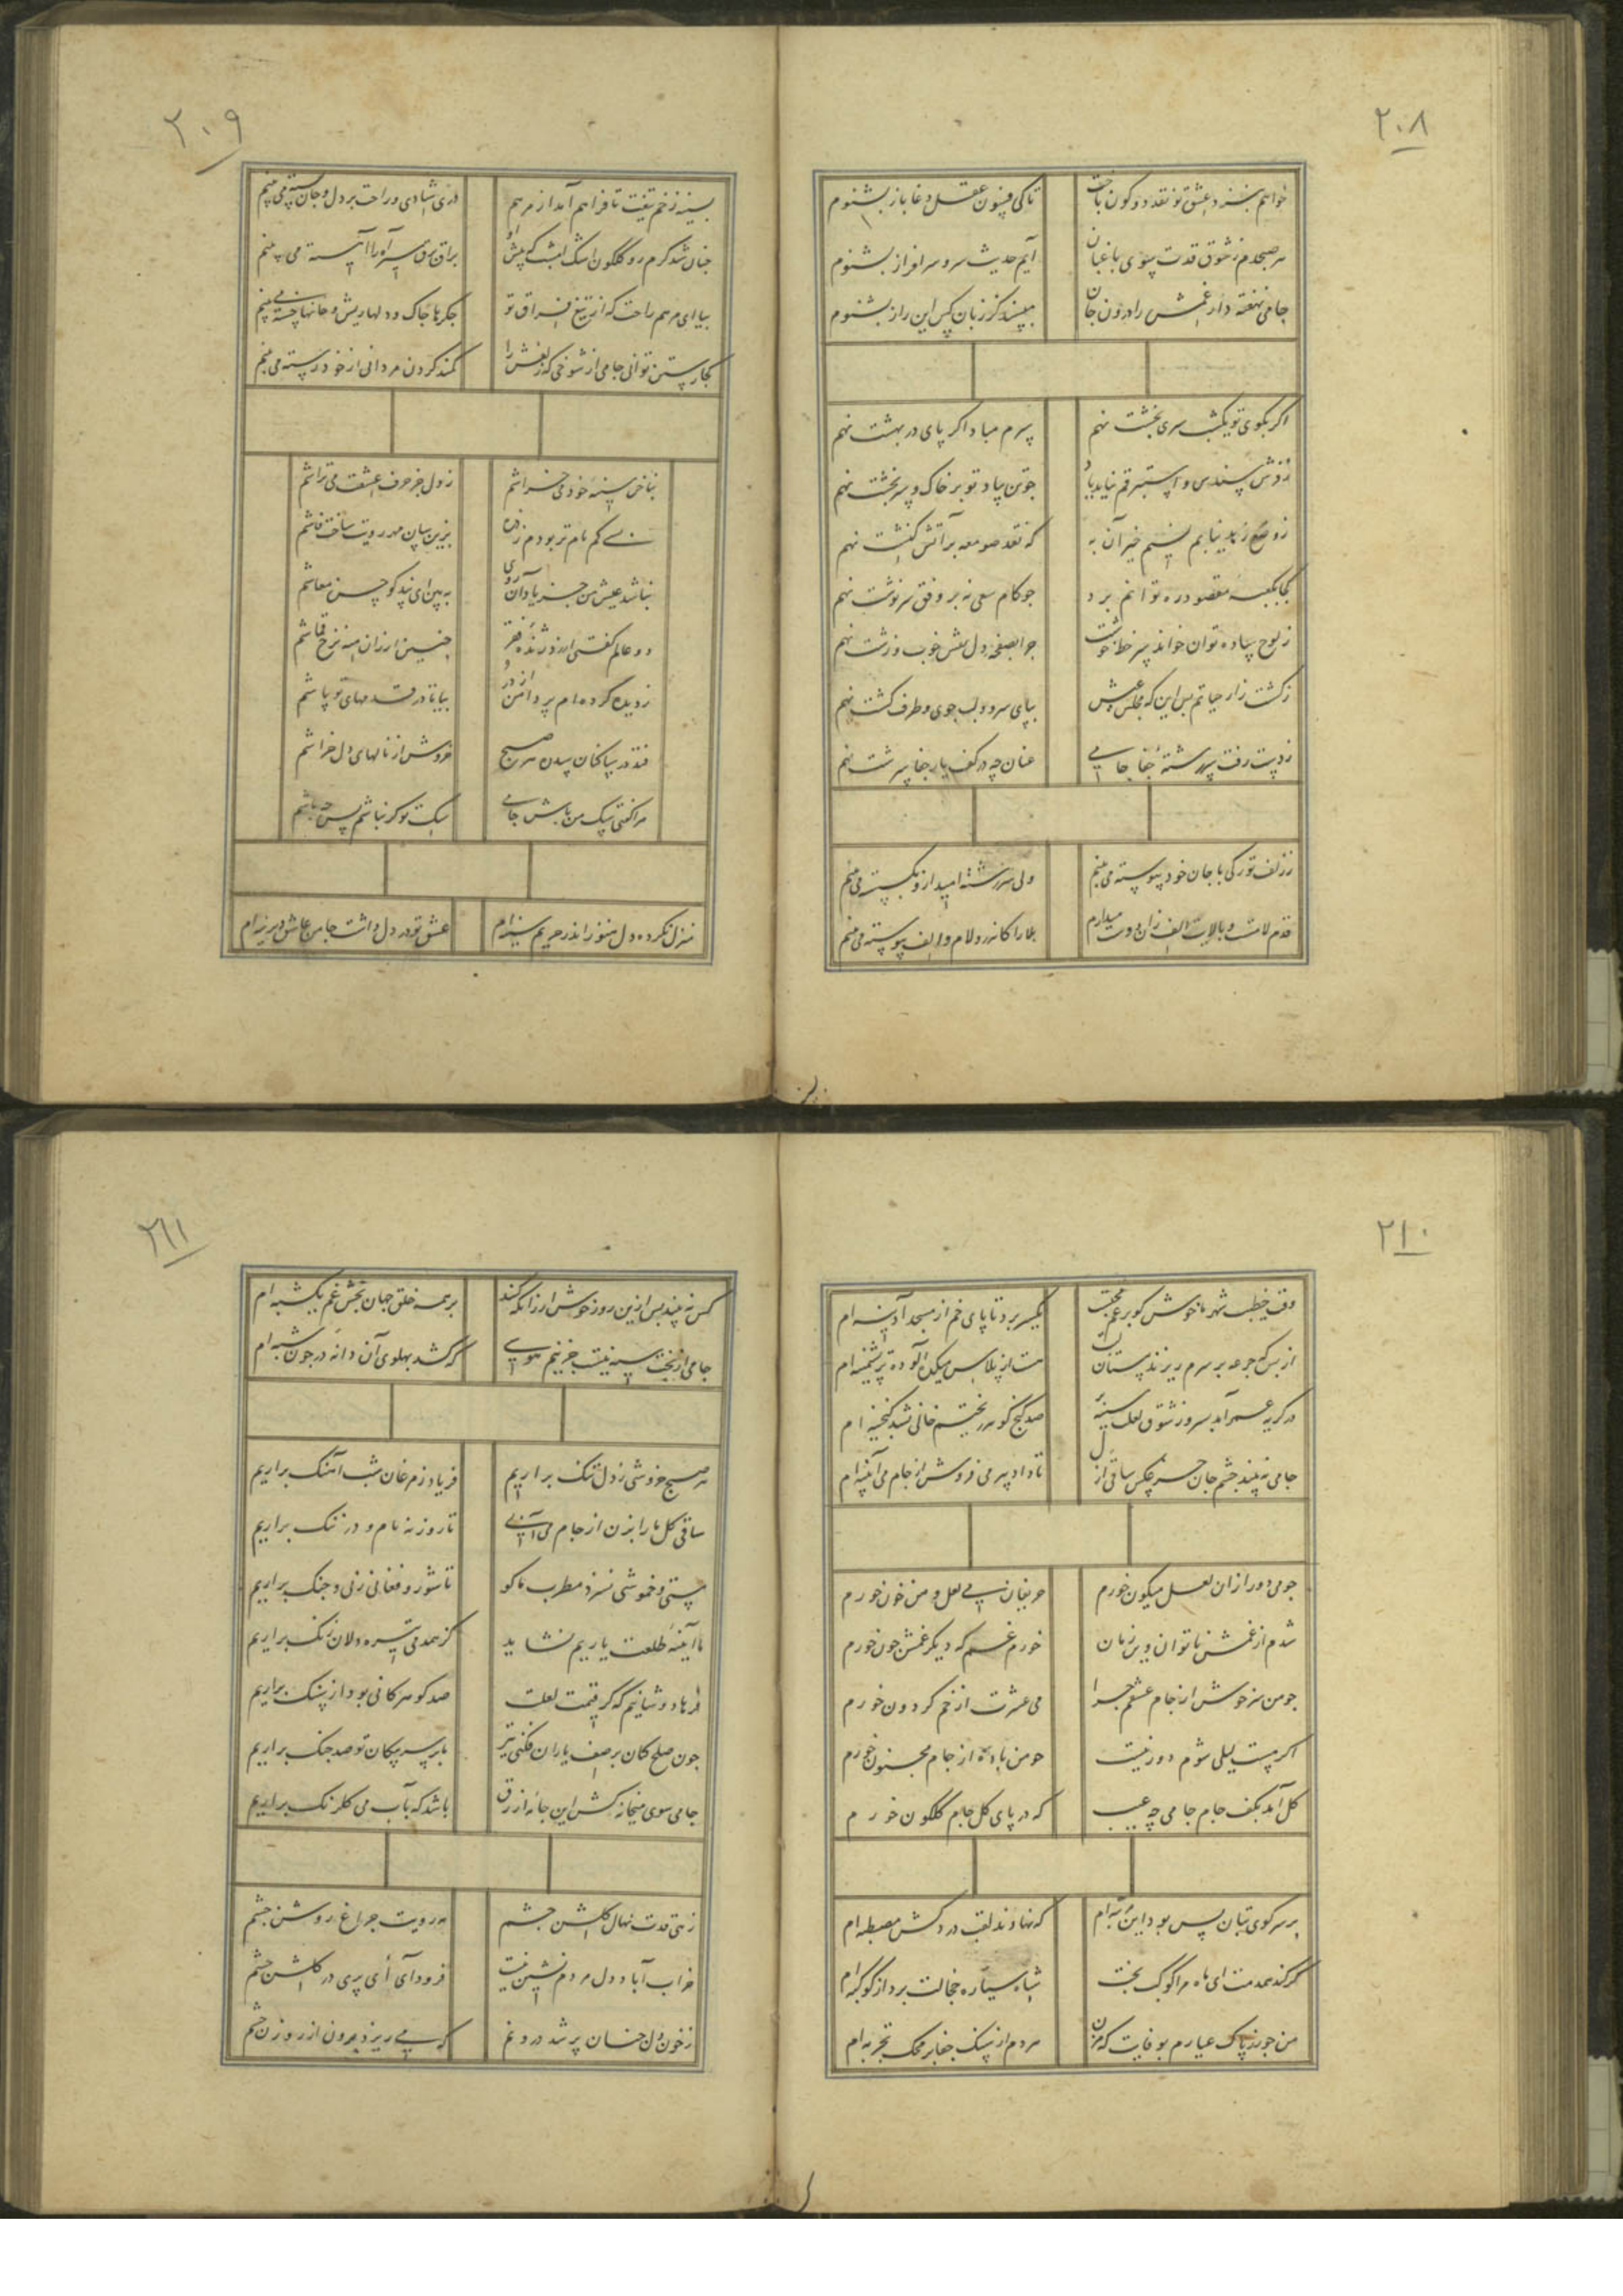 ٢٠٨
خواهم بنزد عشق تو نقد دو کون باخت
تا کی فسون عقل دغا باز بشنوم
هر صبحدم ز شوق قدت سوی باغبان
آیم حدیث سرو سرافراز بشنوم
جامی نهفته دار غمش را درون جان
مپسند کز زبان کس این راز بشنوم
اکر بکوی تو یکشب سری بخشت نهم
سرم مباد اکر پای در بهشت نهم
ز فرش سندس و استبرقم نیاید یاد
چو تن بیاد تو بر خاک و سر بخشت نهم
ز وضع زهد نیابم نسیم خیر آن به
که نقد صومعه بر آتش کنشت نهم
کجا بکعبه مقصود ره توانم برد
چو کام سعی نه بر وفق سرنوشت نهم
ز لوح ساده توان خواند سر خط خوشت
چرا بصفحه دل نقش خوب و زشت نهم
ز کشت زار حیاتم بس این که مجلس عیش
بپای سرو و لب جوی و طرف کشت نهم
ز دست رفت سر رشته جفا جامی
عنان چه در کف یار جفا سرشت نهم
ز زلف تو رکی با جان خود پیوسته می بینم
ولی سررشته امید ازو بکسسته می بینم
قدم لامست و بالایت الف زان دوست میدارم
بلا را کاندرو لام و الف پیوسته می بینم
٢٠٩
بسینه زخم تیغت تا فراهم آمد از مرهم
دری شادی و راحت بر دل و جان بسته می بینم
چنان شد کرم رو کلکون اشک امشب که پیش او
براق برق سیر آه را آهسته می بینم
بیا ای مرهم راحت که از تیغ فراق تو
جکرها چاک و دلها ریش و جانها خسته می بینم
کجا رستن توانی جامی از شوخی که زلفش را
کمند کردن مردانی از خود رسته می بینم
بناخن سینه خود می خراشم
ز دل جز حرف عشقت می تراشم
نی کم نام تر بودم زذره
بزین سان مهر رویت ساخت فاشم
نباشد عیش من جز یاد آن روی
ببین ای پندکو حسن معاشم
دو عالم کفتی ارزد ژنده فقر
چنین ارزان منه نرخ قماشم
ز دیده کرده ام پر دامن از در
بیا تا در قدمهای تو پاشم
فتد در پاکان سدن هر صبح
خروش از نالهای دل خراشم
مرا کفتی سک من باش جامی
سکت تو کر نباشم پس چه باشم
منزل نکرده دل هنوز اندر حریم سینه ام
عشق تو در دل داشت جا من عاشق دیرینه ام
٢١٠
وقف خطیب شهر ما خوش کو برغم محتسب
یکسر برد تا پای خم از مسجد آدینه ام
از بس که جرعه بر سرم ریزند مستان
هست از پلاس میکده آلوده تر پشمینه ام
در کریه عمر آمد بسر وز شوق لعلت سینه
صد کنج کوهر ریخته خالی نشد کنجینه ام
جامی نه بیند چشم جان جز عکس ساقی از ل
تا داد پیر می فروش از جام می آئینه ام
چو می دور از ان لعل میکون خورم
حریفان می لعل و من خون خورم
شدم از غمش ناتوان وین زمان
خورم غم که دیکر غمش چون خورم
چو من سرخوش از جام عشقم چرا
می عشرت از خم کردون خورم
اکر مست لیلی شوم دور نیست
چو من باده از جام مجنون خورم
کل آمد بکف جام جامی چه عیب
که در پای کل جام کلکون خورم
بر سر کوی بتان بس بود این مرتبه ام
که نهادند لقب درد کش مصطبه ام
کر کند همدمت ای ماه مرا کوکب بخت
شاه سیاره خجالت برد از کوکبه ام
من چو زر پاک عیارم بوفایت که مزن
هر دم از سنک جفا بر محک تجربه ام
٢١١
کس نه بیند پس ازین روز خوش ار زانکه کند
بر همه خلق جهان بخش غم یکشبه ام
جامی از بخت سیه نیست جز نیم هوسی
که کشد بهلوی آن دانه در چون شبه ام
هر صبح خروشی ز دل تنک براریم
فریاد ز مرغان شب آهنک براریم
ساقی کل ما را بزن از جام می آبی
تا روز نه نام و در ننک براریم
مستی و خموشی نسزد مطرب ما کو
تا شور و فغانی ز نی و چنک براریم
ما آینه طلعت یاریم نشاید
کز همدمی تیره دلان زنک براریم
فرهاد و شانیم که کر قیمت لعلت
صد کوهر کانی بود از سنک براریم
چون صلح کنان بر صف یاران فکنی تیر
ما بر سر پیکان تو صد جنک براریم
جامی سوی میخانه کش این جامه ازرق
باشد که بآب می کلرنک براریم
زهی قدت نهال کلشن چشم
مه رویت چراغ روشن چشم
خراب آباد دل مردم نشین نیست
فرود آی ای پری در کلشن چشم
ز خون دل چنان پر شد درونم
که می ریزد برون از روزن چشم